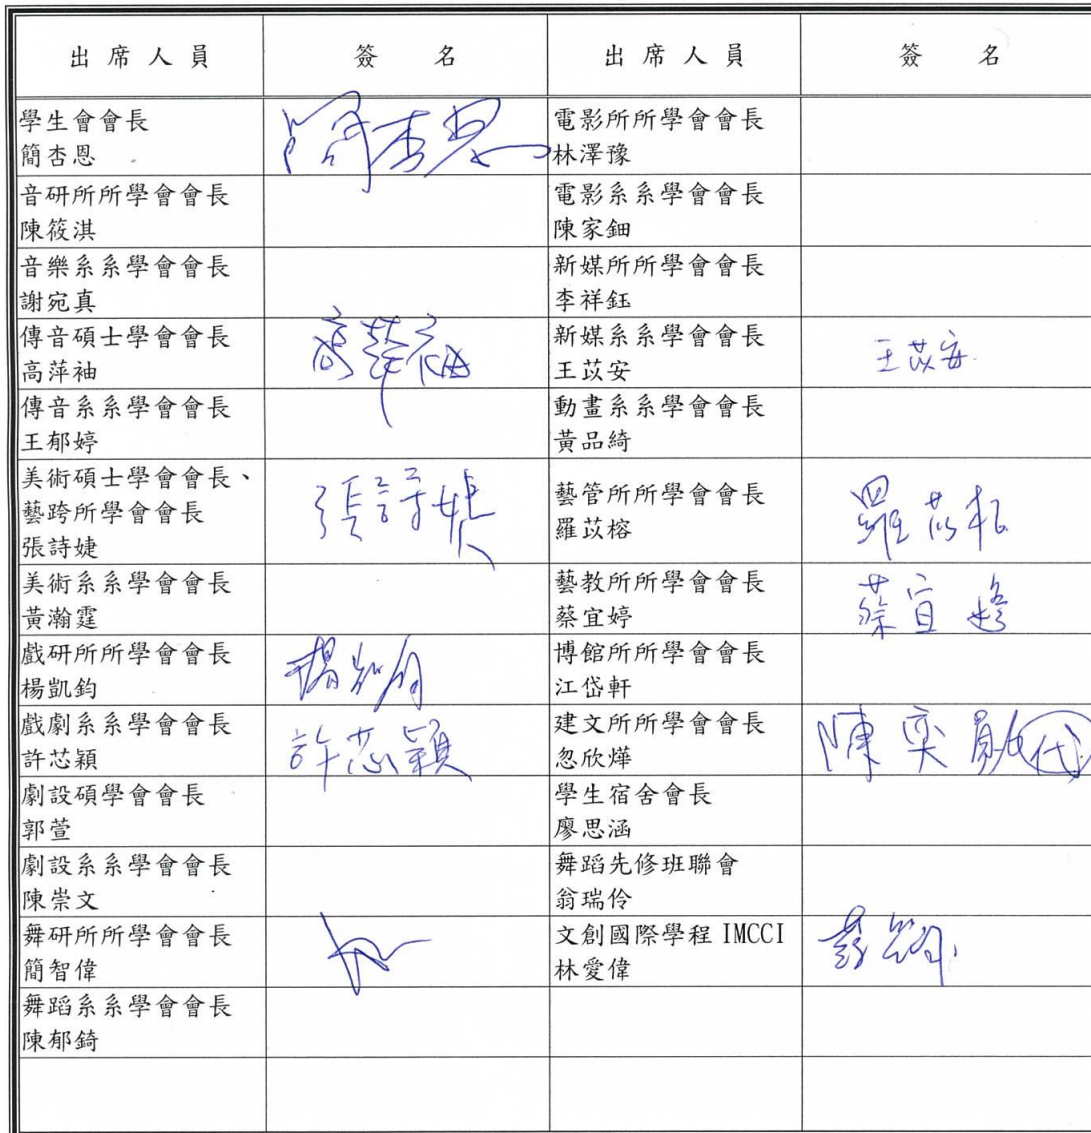 出席人員 簽名 出席人員 簽名
學生會會長
簡杏恩
簡杏恩
電影所所學會會長
林澤豫
音研所所學會會長
陳筱淇
電影系系學會會長
陳家鈿
音樂系系學會會長
謝宛真
新媒所所學會會長
李祥鈺
傳音碩士學會會長
高萍袖
高萍袖
新媒系系學會會長
王苡安
王苡安
傳音系系學會會長
王郁婷
動畫系系學會會長
黃品綺
美術碩士學會會長、
藝跨所學會會長
張詩婕
張詩婕
藝管所所學會會長
羅苡榕
羅苡榕
美術系系學會會長
黃瀚霆
藝教所所學會會長
蔡宜婷
蔡宜婷
戲研所所學會會長
楊凱鈞
楊凱鈞
博館所所學會會長
江岱軒
戲劇系系學會會長
許芯穎
許芯穎
建文所所學會會長
忽欣燁
陳奕勛代
劇設碩學會會長
郭萱
學生宿舍會長
廖思涵
劇設系系學會會長
陳崇文
舞蹈先修班聯會
翁瑞伶
舞研所所學會會長
簡智偉
文創國際學程 IMCCI
林愛偉
舞蹈系系學會會長
陳郁錡